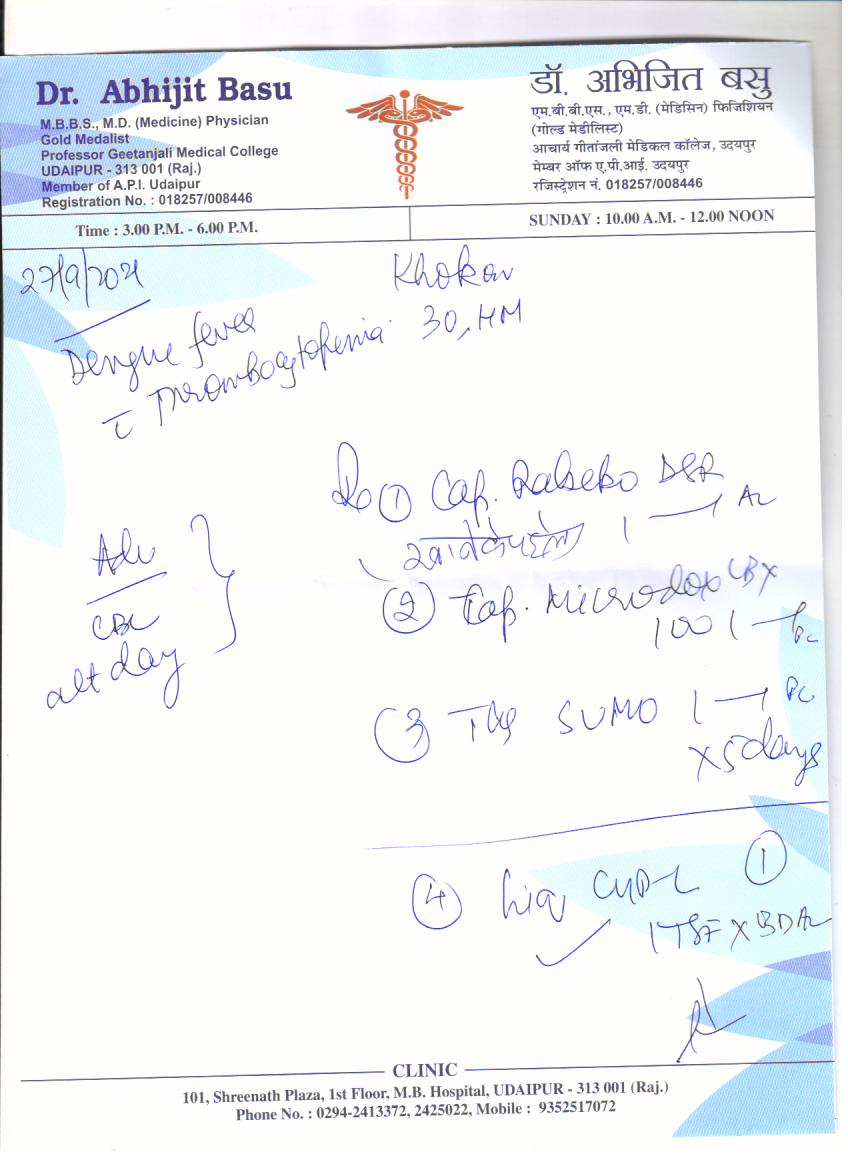 Dr. Abhijit Basu
M.B.B.S., M.D. (Medicine) Physician
Gold Medalist
Professor Geetanjali Medical College
UDAIPUR - 313 001 (Raj.)
Member of A.P.I. Udaipur
Registration No. : 018257/008446
डॉ. अभिजित बसु
एम.बी.बी.एस., एम.डी. (मेडिसिन) फिजिशियन
(गोल्ड मेडीलिस्ट)
आचार्य गीतांजली मेडिकल कॉलेज, उदयपुर
मेम्बर ऑफ ए.पी.आई. उदयपुर
रजिस्ट्रेशन नं. 018257/008446
Time : 3.00 P.M. - 6.00 P.M.
SUNDAY : 10.00 A.M. - 12.00 NOON
27/9/2021
Khokan
30, HM
Dengue fever
c Thrombocytopenia
Adv
CBC
alt day
Rx ① Cap. Rabeko DSR
1 → AC
खाने के पहले
② Cap. Microdox LBX
100 1 → PC
③ Tab SUMO 1 → PC
x 5 days
④ Liq ①
1 TSF x BD AC
CLINIC
101, Shreenath Plaza, 1st Floor, M.B. Hospital, UDAIPUR - 313 001 (Raj.)
Phone No. : 0294-2413372, 2425022, Mobile : 9352517072